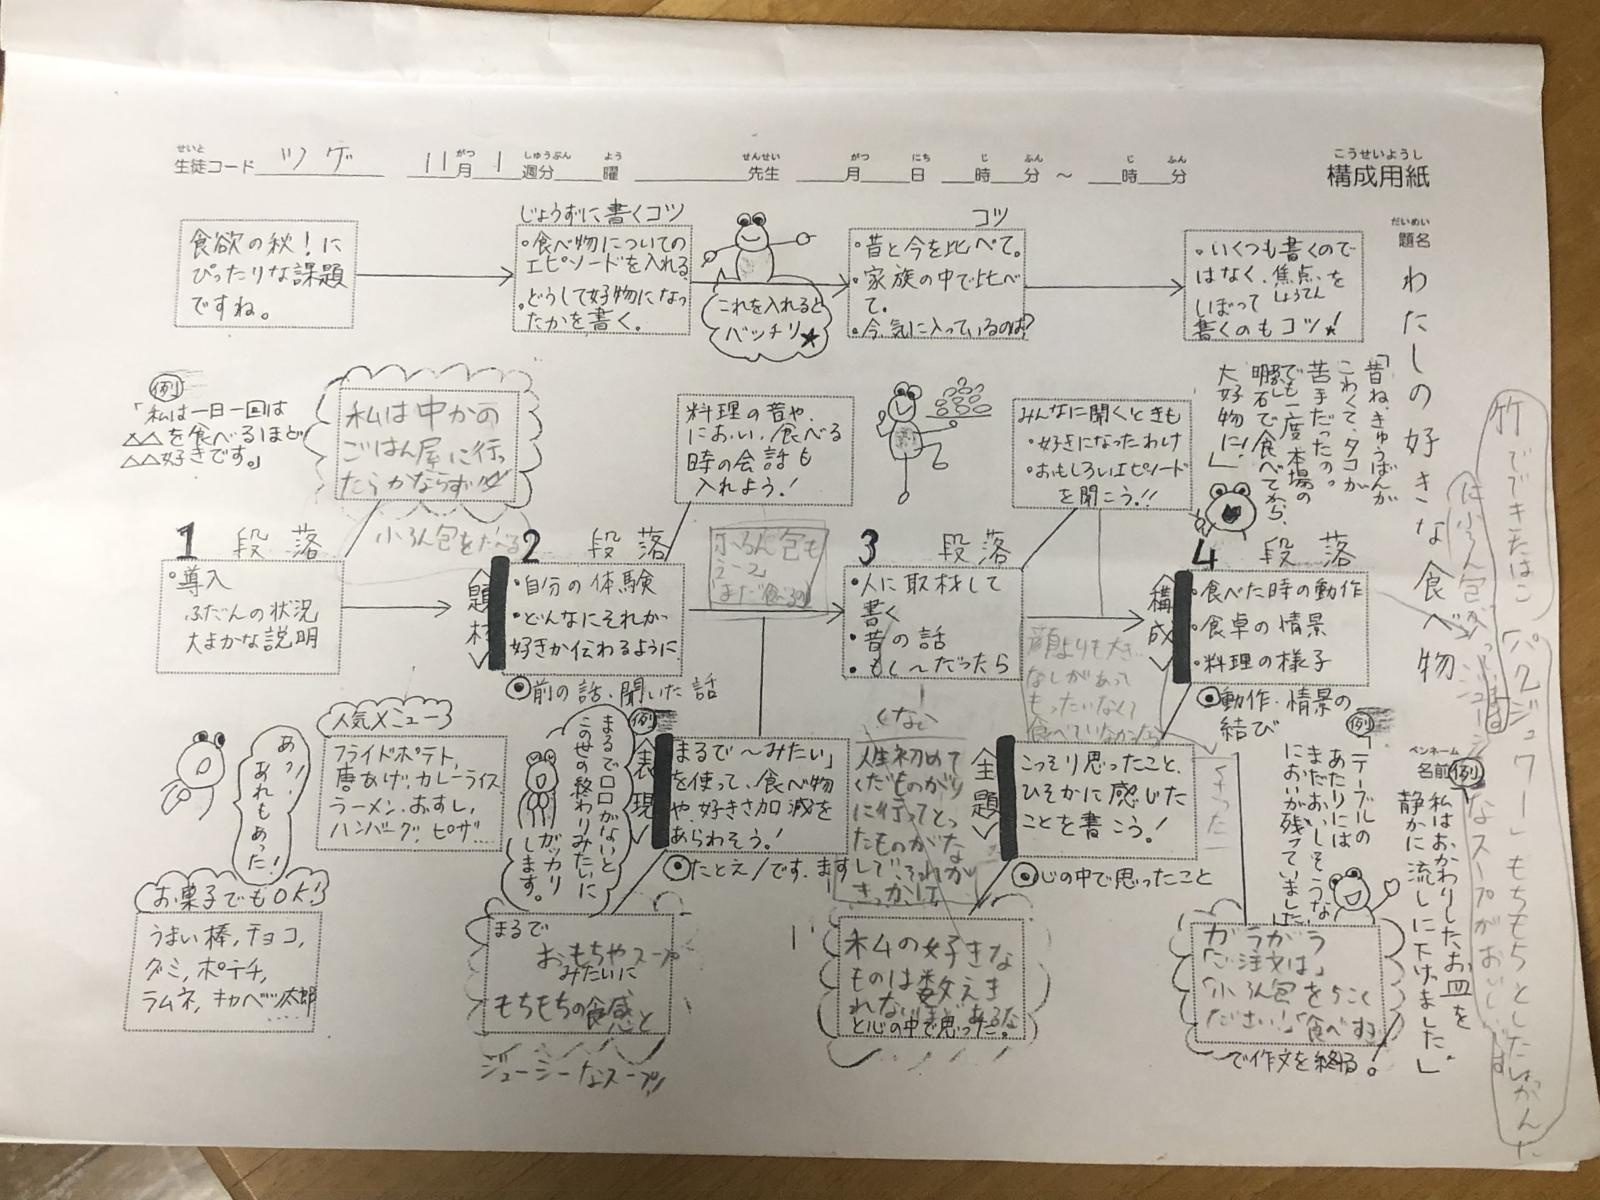 せいと
生徒コード ツゲ 11月 1週分 曜 先生 月 日 時 分 ～ 時 分
がつ しゅうぶん よう せんせい がつ にち じ ふん じ ふん
こうせいようし
構成用紙
だいめい
題名
わたしの好きな食べ物
食欲の秋！に
ぴったりな課題
ですね。
じょうずに書くコツ
・食べ物についての
エピソードを入れる
・どうして好物になっ
たかを書く。
これを入れると
バッチリ★
コツ
・昔と今を比べて。
・家族の中で比べ
て。
・今、気に入っているのは?
・いくつも書くので
はなく、焦点を
しょうてん
しぼって
書くのもコツ★!
例
「私は一日一回は
△△を食べるほど
△△好きです。」
私は中かの
ごはん屋に行っ
たらかならず
小ろん包をたべる
料理の音や、
におい、食べる
時の会話も
入れよう！
みんなに聞くときも
・好きになったわけ
・おもしろいエピソード
を聞こう!!
「昔ね、きゅうばんが
こわくて、タコが
苦手だったの。
でも一度本場の
明石で食べてから、
大好物に！」
1 段落
・導入
ふだんの状況
大まかな説明
2 段落
〈題材〉
・自分の体験
・どんなにそれが
好きか伝わるように
◎前の話・聞いた話
小ろん包も
3 段落
・人に取材して
書く
・昔の話
・もし～だったら
4 段落
〈構成〉
・食べた時の動作
・食卓の情景
・料理の様子
◎動作、情景の
結び
顔よりも大き
なしがあって
もったいなくて
食べていなかったら
くさった
人気メニュー
フライドポテト、
唐あげ、カレーライス
ラーメン、おすし、
ハンバーグ、ピザ…
あっ！
あれもあった！
お菓子でもOK!
うまい棒、チョコ、
グミ、ポテチ、
ラムネ、キャベツ太郎
……
例
まるで口口がないと
この世の終わりみたいに
ガッカリ
します。
〈表現〉
「まるで～みたい」
を使って、食べ物
や、好きさ加減を
あらわそう！
◎たとえ/です、ます
まるで
おもちやスープ
みたいに
もちもちの食感と
ジューシーなスープ
〈なし〉
人生初めて
くだものがり
に行ってとっ
たものがな
しで、それが
きっかけ
〈主題〉
こっそり思ったこと、
ひそかに感じた
ことを書こう！
◎心の中で思ったこと
私の好きな
ものは数えき
れないほどあるな
と心の中で思った。
例
「テーブルの
あたりには
まだおいしそうな
においが残っていました」
ガラガラ
「ご注文は」
「小ろん包を5こく
ださい！」食べすぎ
で作文を終る。
ペンネーム
名前
例
「私はおかわりしたお皿を
静かに流しに下げました。」
竹でできたはこ
に小ろん包が入っている
「パクジュワー」もちもちとした
ジューシーなスープがおいしいです